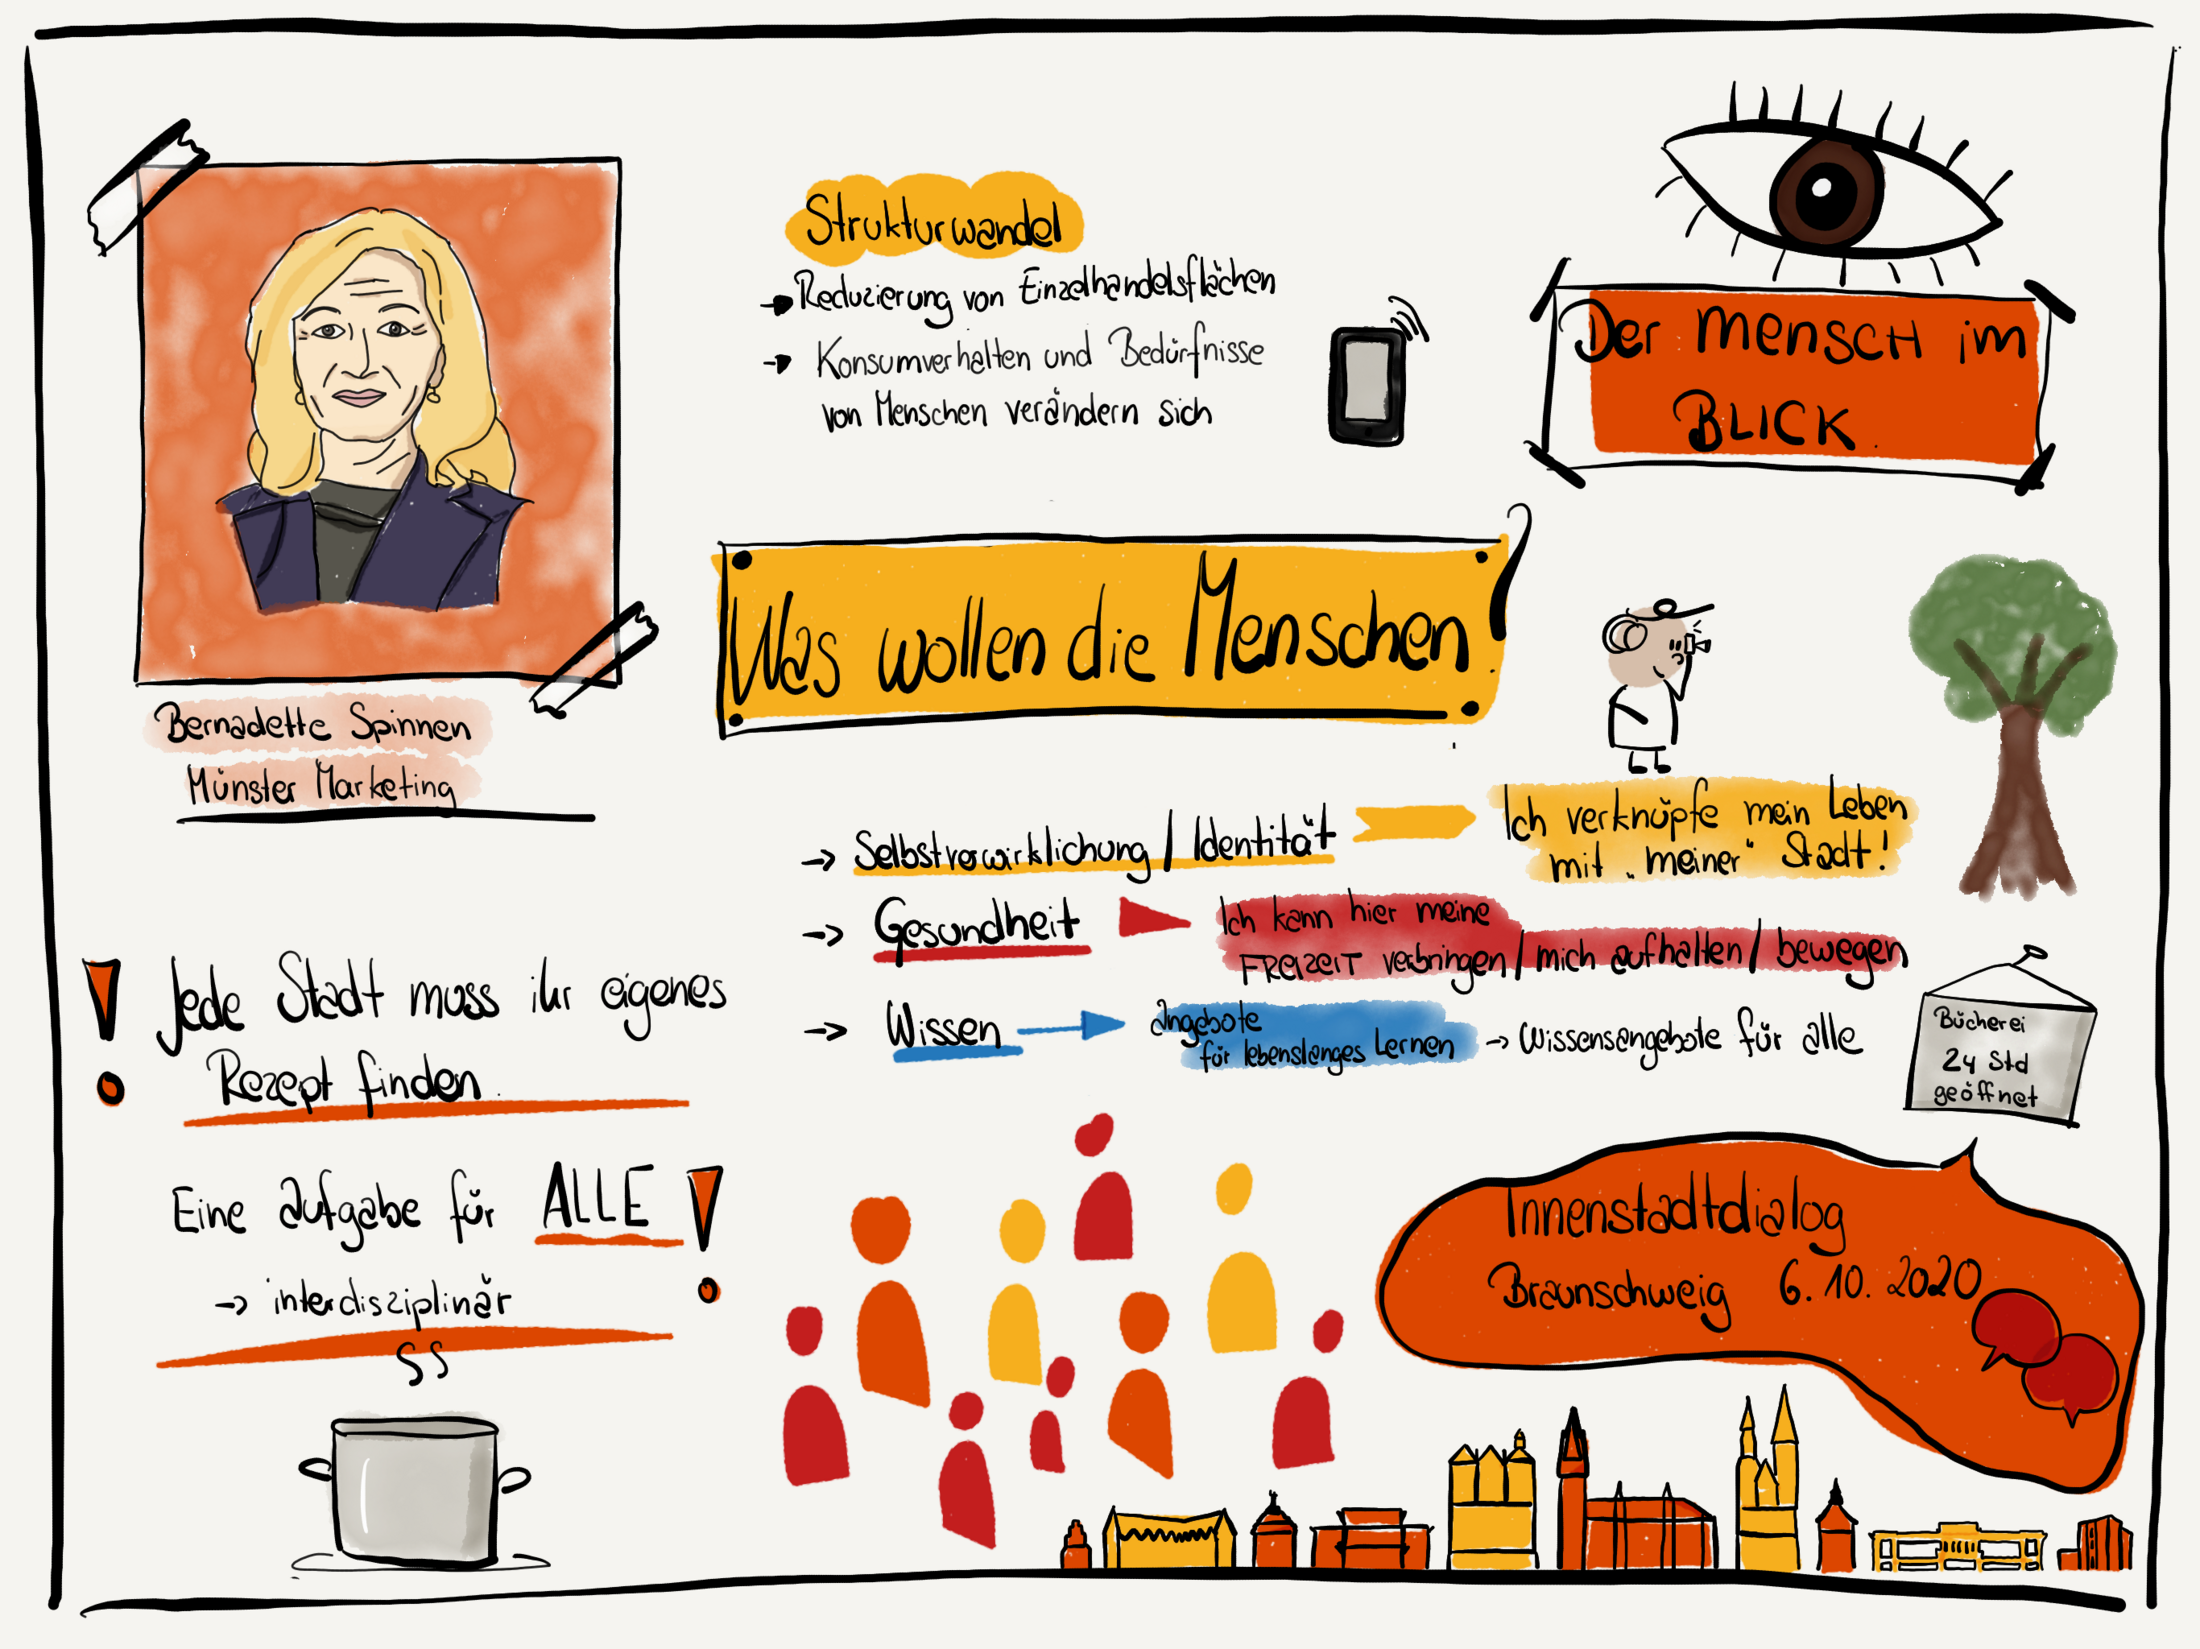 Strukturwandel
→ Reduzierung von Einzelhandelsflächen
→ Konsumverhalten und Bedürfnisse
von Menschen verändern sich
Der Mensch im
BLICK
Was wollen die Menschen?
Bernadette Spinnen
Münster Marketing
→ Selbstverwirklichung / Identität
Ich verknüpfe mein Leben
mit „meiner" Stadt!
→ Gesundheit
Ich kann hier meine
FREIZEIT verbringen / mich aufhalten / bewegen
→ Wissen
Angebote
für lebenslanges Lernen → Wissensangebote für alle
Bücherei
24 Std
geöffnet
! Jede Stadt muss ihr eigenes
Rezept finden
Eine Aufgabe für ALLE !
→ interdisziplinär
Innenstadtdialog
Braunschweig 6.10.2020